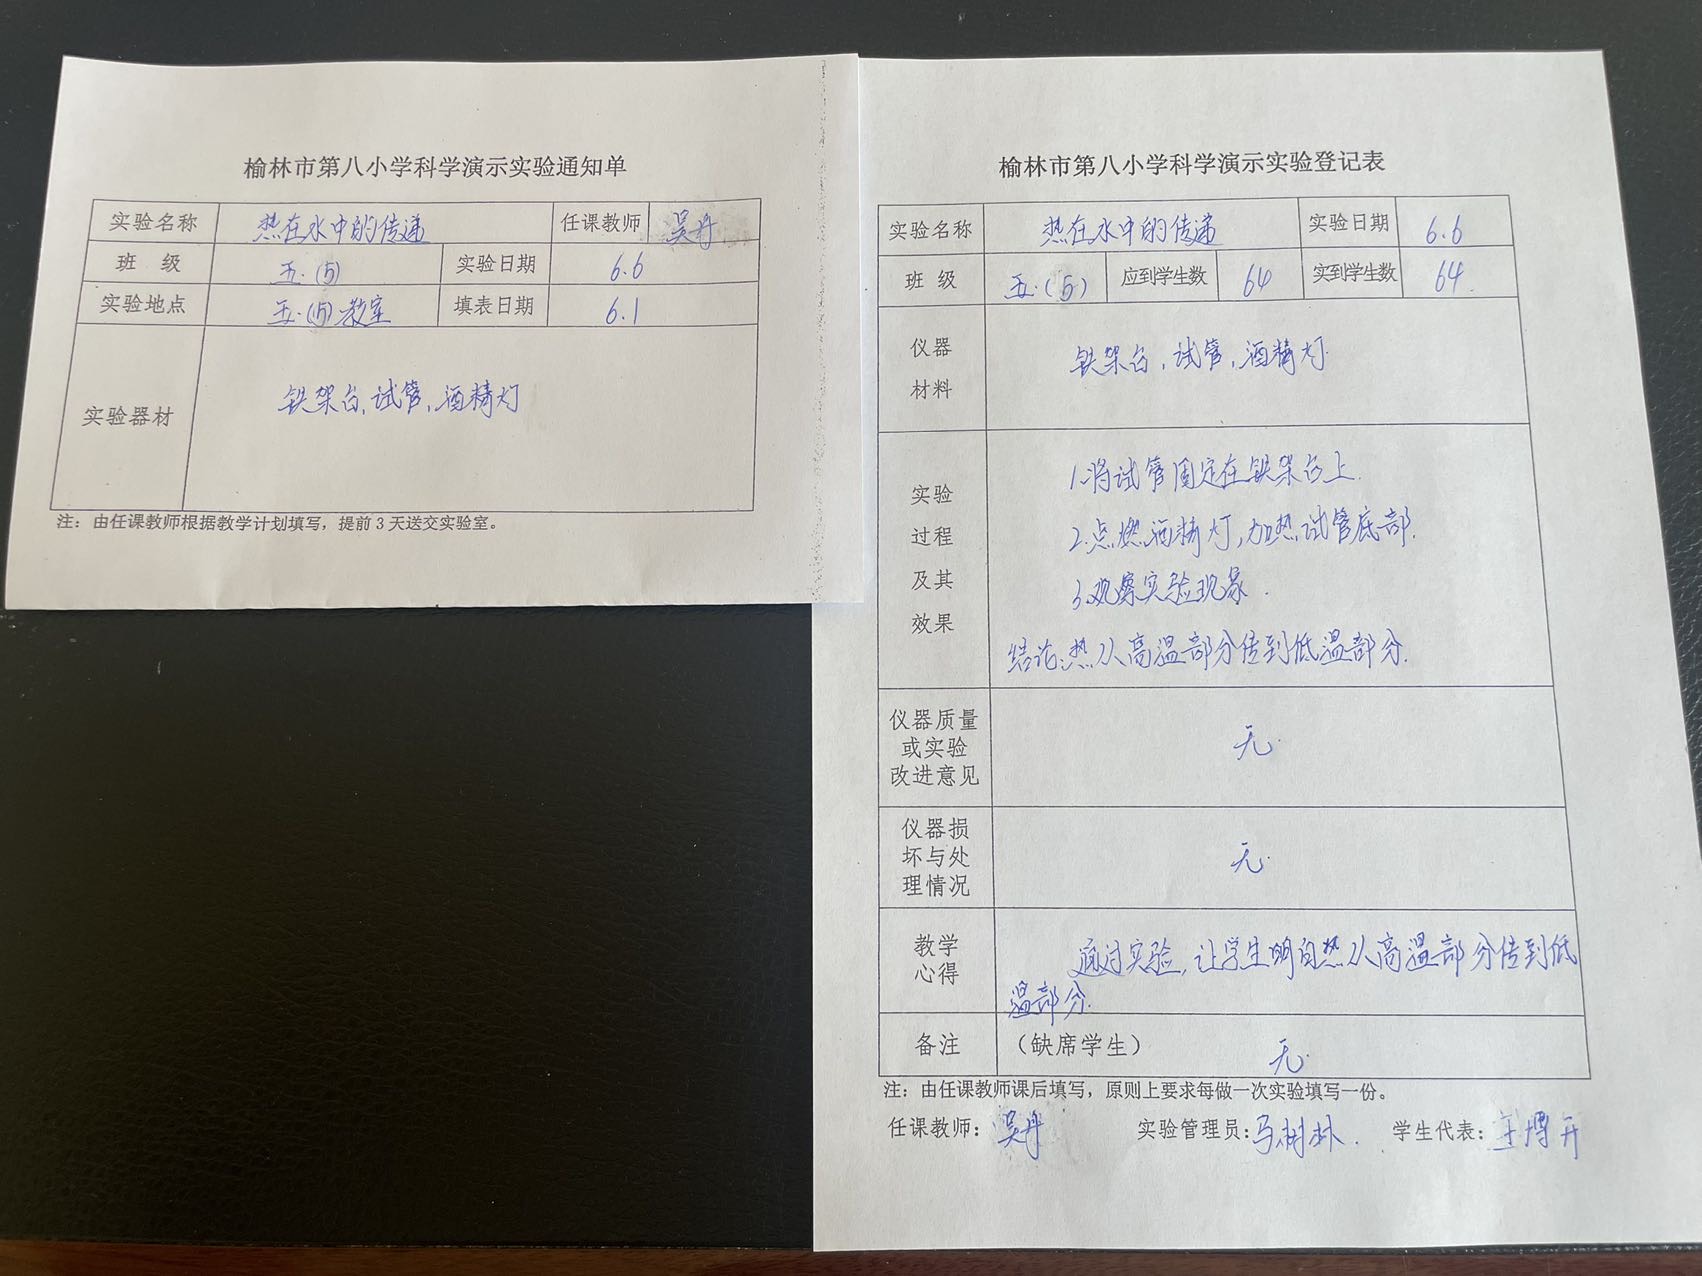 榆林市第八小学科学演示实验通知单
实验名称 热在水中的传递 任课教师 吴丹
班 级 五.(5) 实验日期 6.6
实验地点 五.(5)教室 填表日期 6.1
实验器材 铁架台,试管,酒精灯
注：由任课教师根据教学计划填写，提前3天送交实验室。
榆林市第八小学科学演示实验登记表
实验名称 热在水中的传递 实验日期 6.6
班 级 五.(5) 应到学生数 64 实到学生数 64.
仪器
材料
铁架台,试管,酒精灯.
实验
过程
及其
效果
1.将试管固定在铁架台上.
2.点燃酒精灯,加热试管底部.
3.观察实验现象.
结论:热从高温部分传到低温部分.
仪器质量
或实验
改进意见
无.
仪器损
坏与处
理情况
无.
教学
心得
通过实验,让学生明白热从高温部分传到低
温部分.
备注 （缺席学生） 无.
注：由任课教师课后填写，原则上要求每做一次实验填写一份。
任课教师: 吴丹 实验管理员: 马树林. 学生代表: 王博